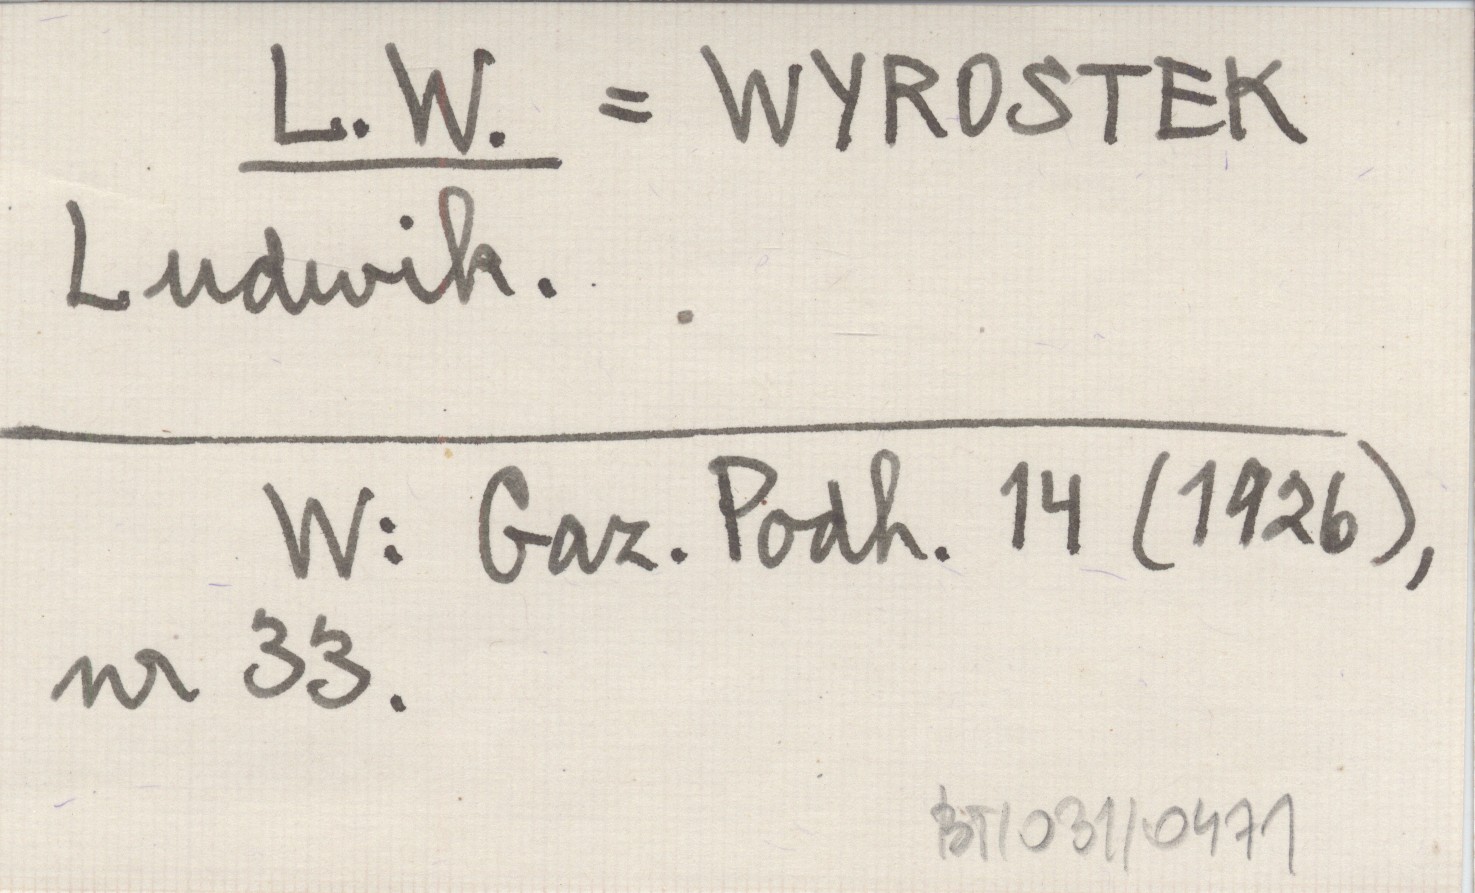 L.W. = WYROSTEK
Ludwik.
W: Gaz. Podh. 14 (1926),
nr 33.
BT/031/0471